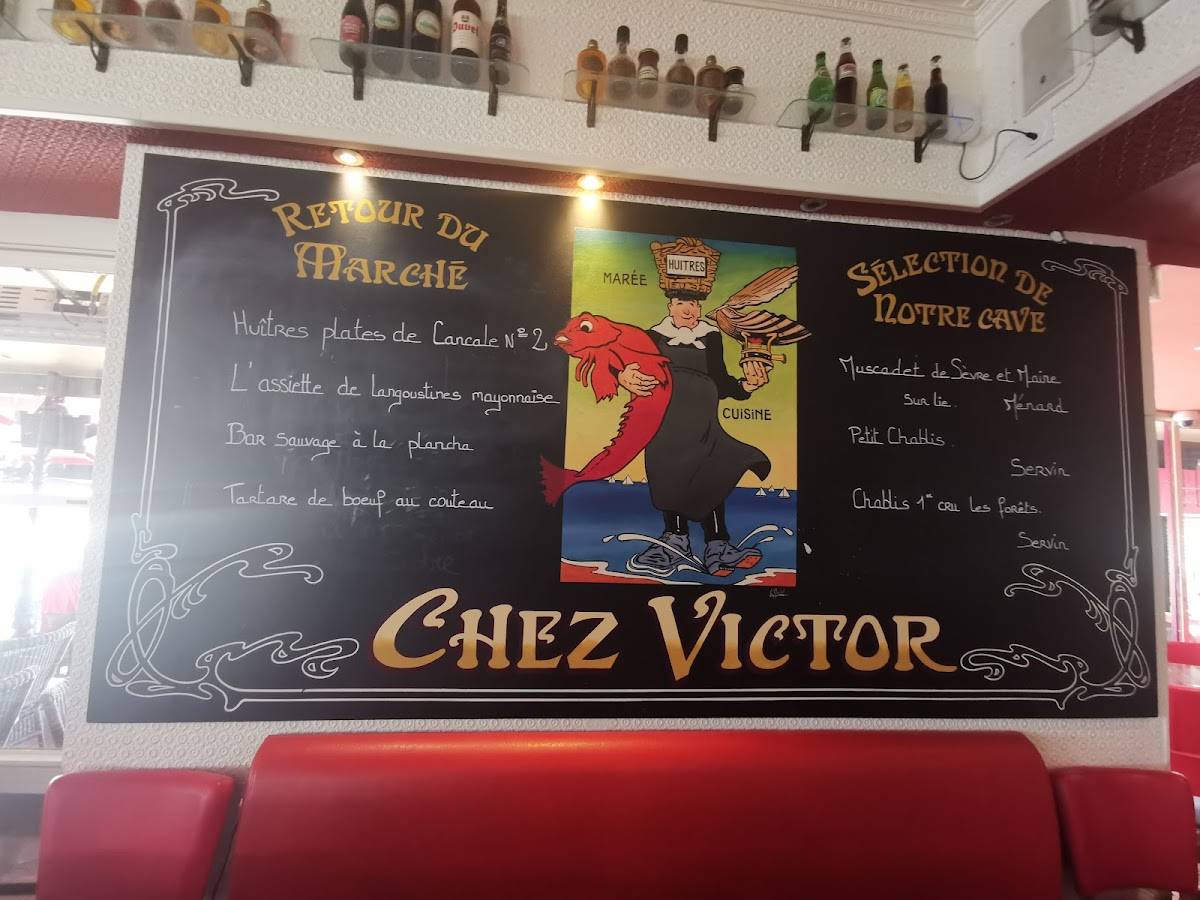 Duvel
RETOUR DU
MARCHÉ
Huîtres plates de Cancale N°2
L'assiette de langoustines mayonnaise
Bar sauvage à la plancha
Tartare de boeuf au couteau
HUITRES
MARÉE
CUISINE
SÉLECTION DE
NOTRE CAVE
Muscadet de Sèvre et Maine
sur lie. Ménard
Petit Chablis.
Servin
Chablis 1er cru les forêts.
Servin
CHEZ VICTOR